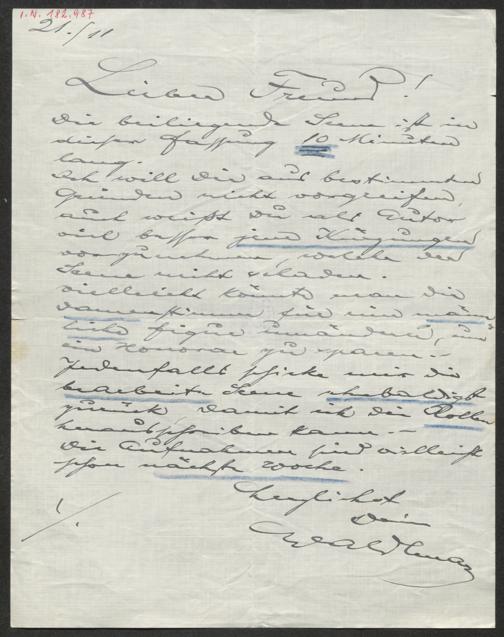 I.N. 182.987
21./11
Lieber Freund!
Die beiliegende Scene ist in
dieser Fassung 10 Minuten
lang.
Ich will Dir aus bestimmten
Gründen nicht vorgreifen,
auch weißt Du als Autor
viel besser jene Kürzungen
vorzunehmen, welche der
Scene nicht schaden.
Vielleicht könnte man die
Damenstimme für eine männ
liche Figur umändern, um
ein Honorar zu sparen. –
Jedenfalls schicke mir die
bearbeitete Scene ehebaldigst
zurück damit ich die Rollen
herausschreiben kann –
Die Aufnahmen sind vielleicht
schon nächste Woche.
Herzlichst
Dein